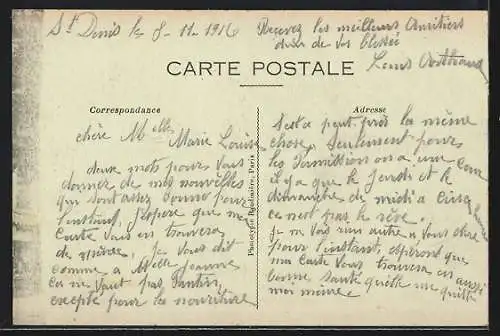 St Denis le 8-11-1916
Recevez les meilleurs Amitiers
d'un de vos blessés
Louis
CARTE POSTALE
Correspondance
Adresse
chère Melle Marie Louise
deux mots pour vous
donner de mes nouvelles
qui sont assez bonne pour
l'instant, j'espère que ma
Carte vous en trouvera
de même, je vous dit
comme a Melle Jeanne
ca ne vaut pas Pantin,
excepté pour la nourriture
Phototypie Baudinière, Paris
s'est a peut près la même
chose, seulement pour
les Permission on a une
il y a que le jeudi et le
dimanche de midi a cinq heures
ce n'est pas le rêve.
je ne vois rien autre a vous dire
pour l'instant, espérant que
ma Carte vous trouvera en aussi
bonne santé quelle me quitte
moi même.